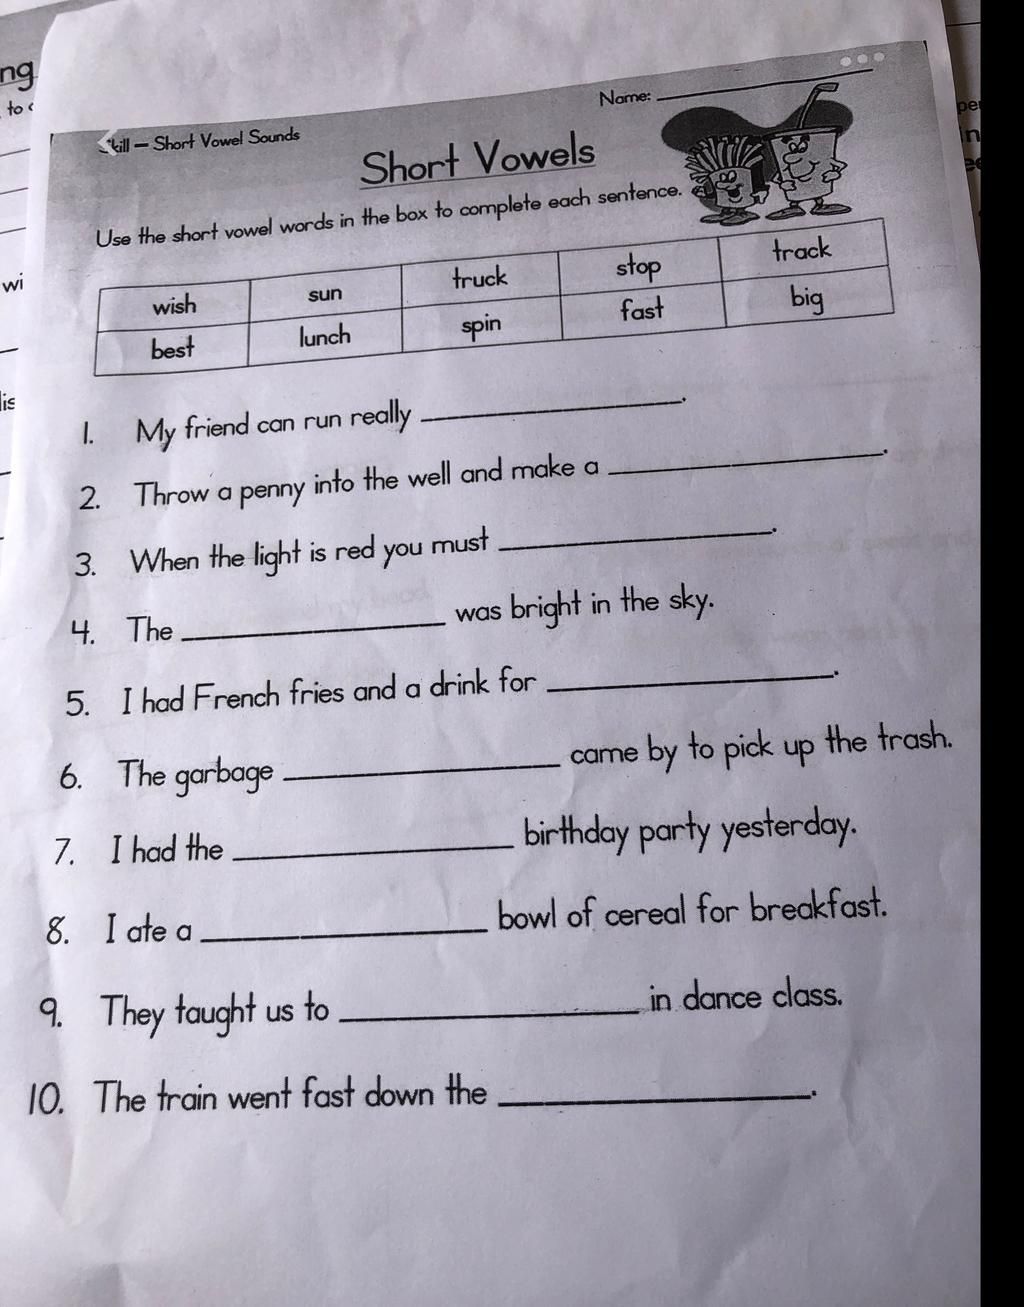 Name:
Skill – Short Vowel Sounds
Short Vowels
Use the short vowel words in the box to complete each sentence.
wish sun truck stop track
best lunch spin fast big
1. My friend can run really ____.
2. Throw a penny into the well and make a ____.
3. When the light is red you must ____.
4. The ____ was bright in the sky.
5. I had French fries and a drink for ____.
6. The garbage ____ came by to pick up the trash.
7. I had the ____ birthday party yesterday.
8. I ate a ____ bowl of cereal for breakfast.
9. They taught us to ____ in dance class.
10. The train went fast down the ____.